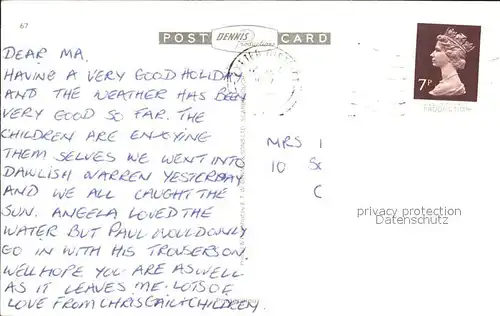 67
POST DENNIS Productions CARD
DEAR MA.
HAVING A VERY GOOD HOLIDAY
AND THE WEATHER HAS BEEN
VERY GOOD SO FAR. THE
CHILDREN ARE ENJOYING
THEM SELVES WE WENT INTO
DAWLISH WARREN YESTERDAY
AND WE ALL CAUGHT THE
SUN. ANGELA LOVED THE
WATER BUT PAUL WOULD ONLY
GO IN WITH HIS TROUSERS ON.
WELL HOPE YOU ARE AS WELL
AS IT LEAVES ME. LOTS OF
LOVE FROM CHRIS GAIL + CHILDREN
7P
MRS
10
privacy protection
Datenschutz